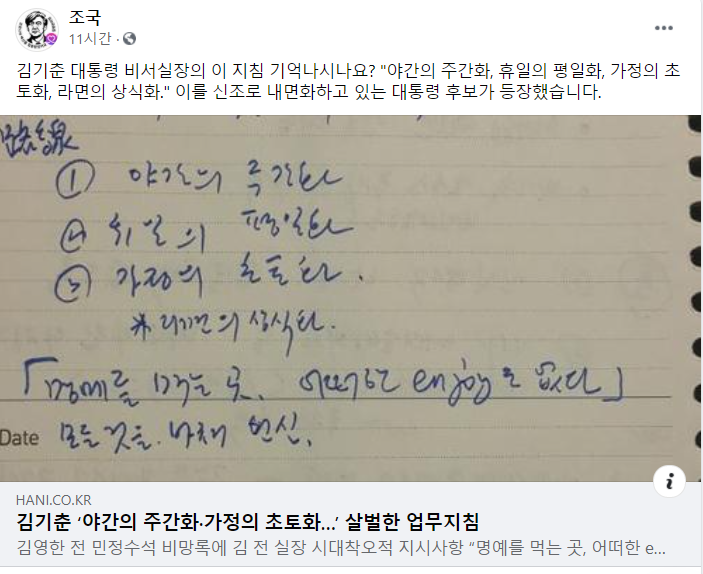 조국
11시간 ·
김기춘 대통령 비서실장의 이 지침 기억나시나요? "야간의 주간화, 휴일의 평일화, 가정의 초
토화, 라면의 상식화." 이를 신조로 내면화하고 있는 대통령 후보가 등장했습니다.
路線
① 야간의 주간화
② 휴일의 평일화
③ 가정의 초토화.
※ 라면의 상식화.
「명예를 먹는 곳. 어떠한 enjoy도 없다」
Date 모든 것을 바쳐 헌신.
HANI.CO.KR
김기춘 ‘야간의 주간화·가정의 초토화...’ 살벌한 업무지침
김영한 전 민정수석 비망록에 김 전 실장 시대착오적 지시사항 “명예를 먹는 곳, 어떠한 e...